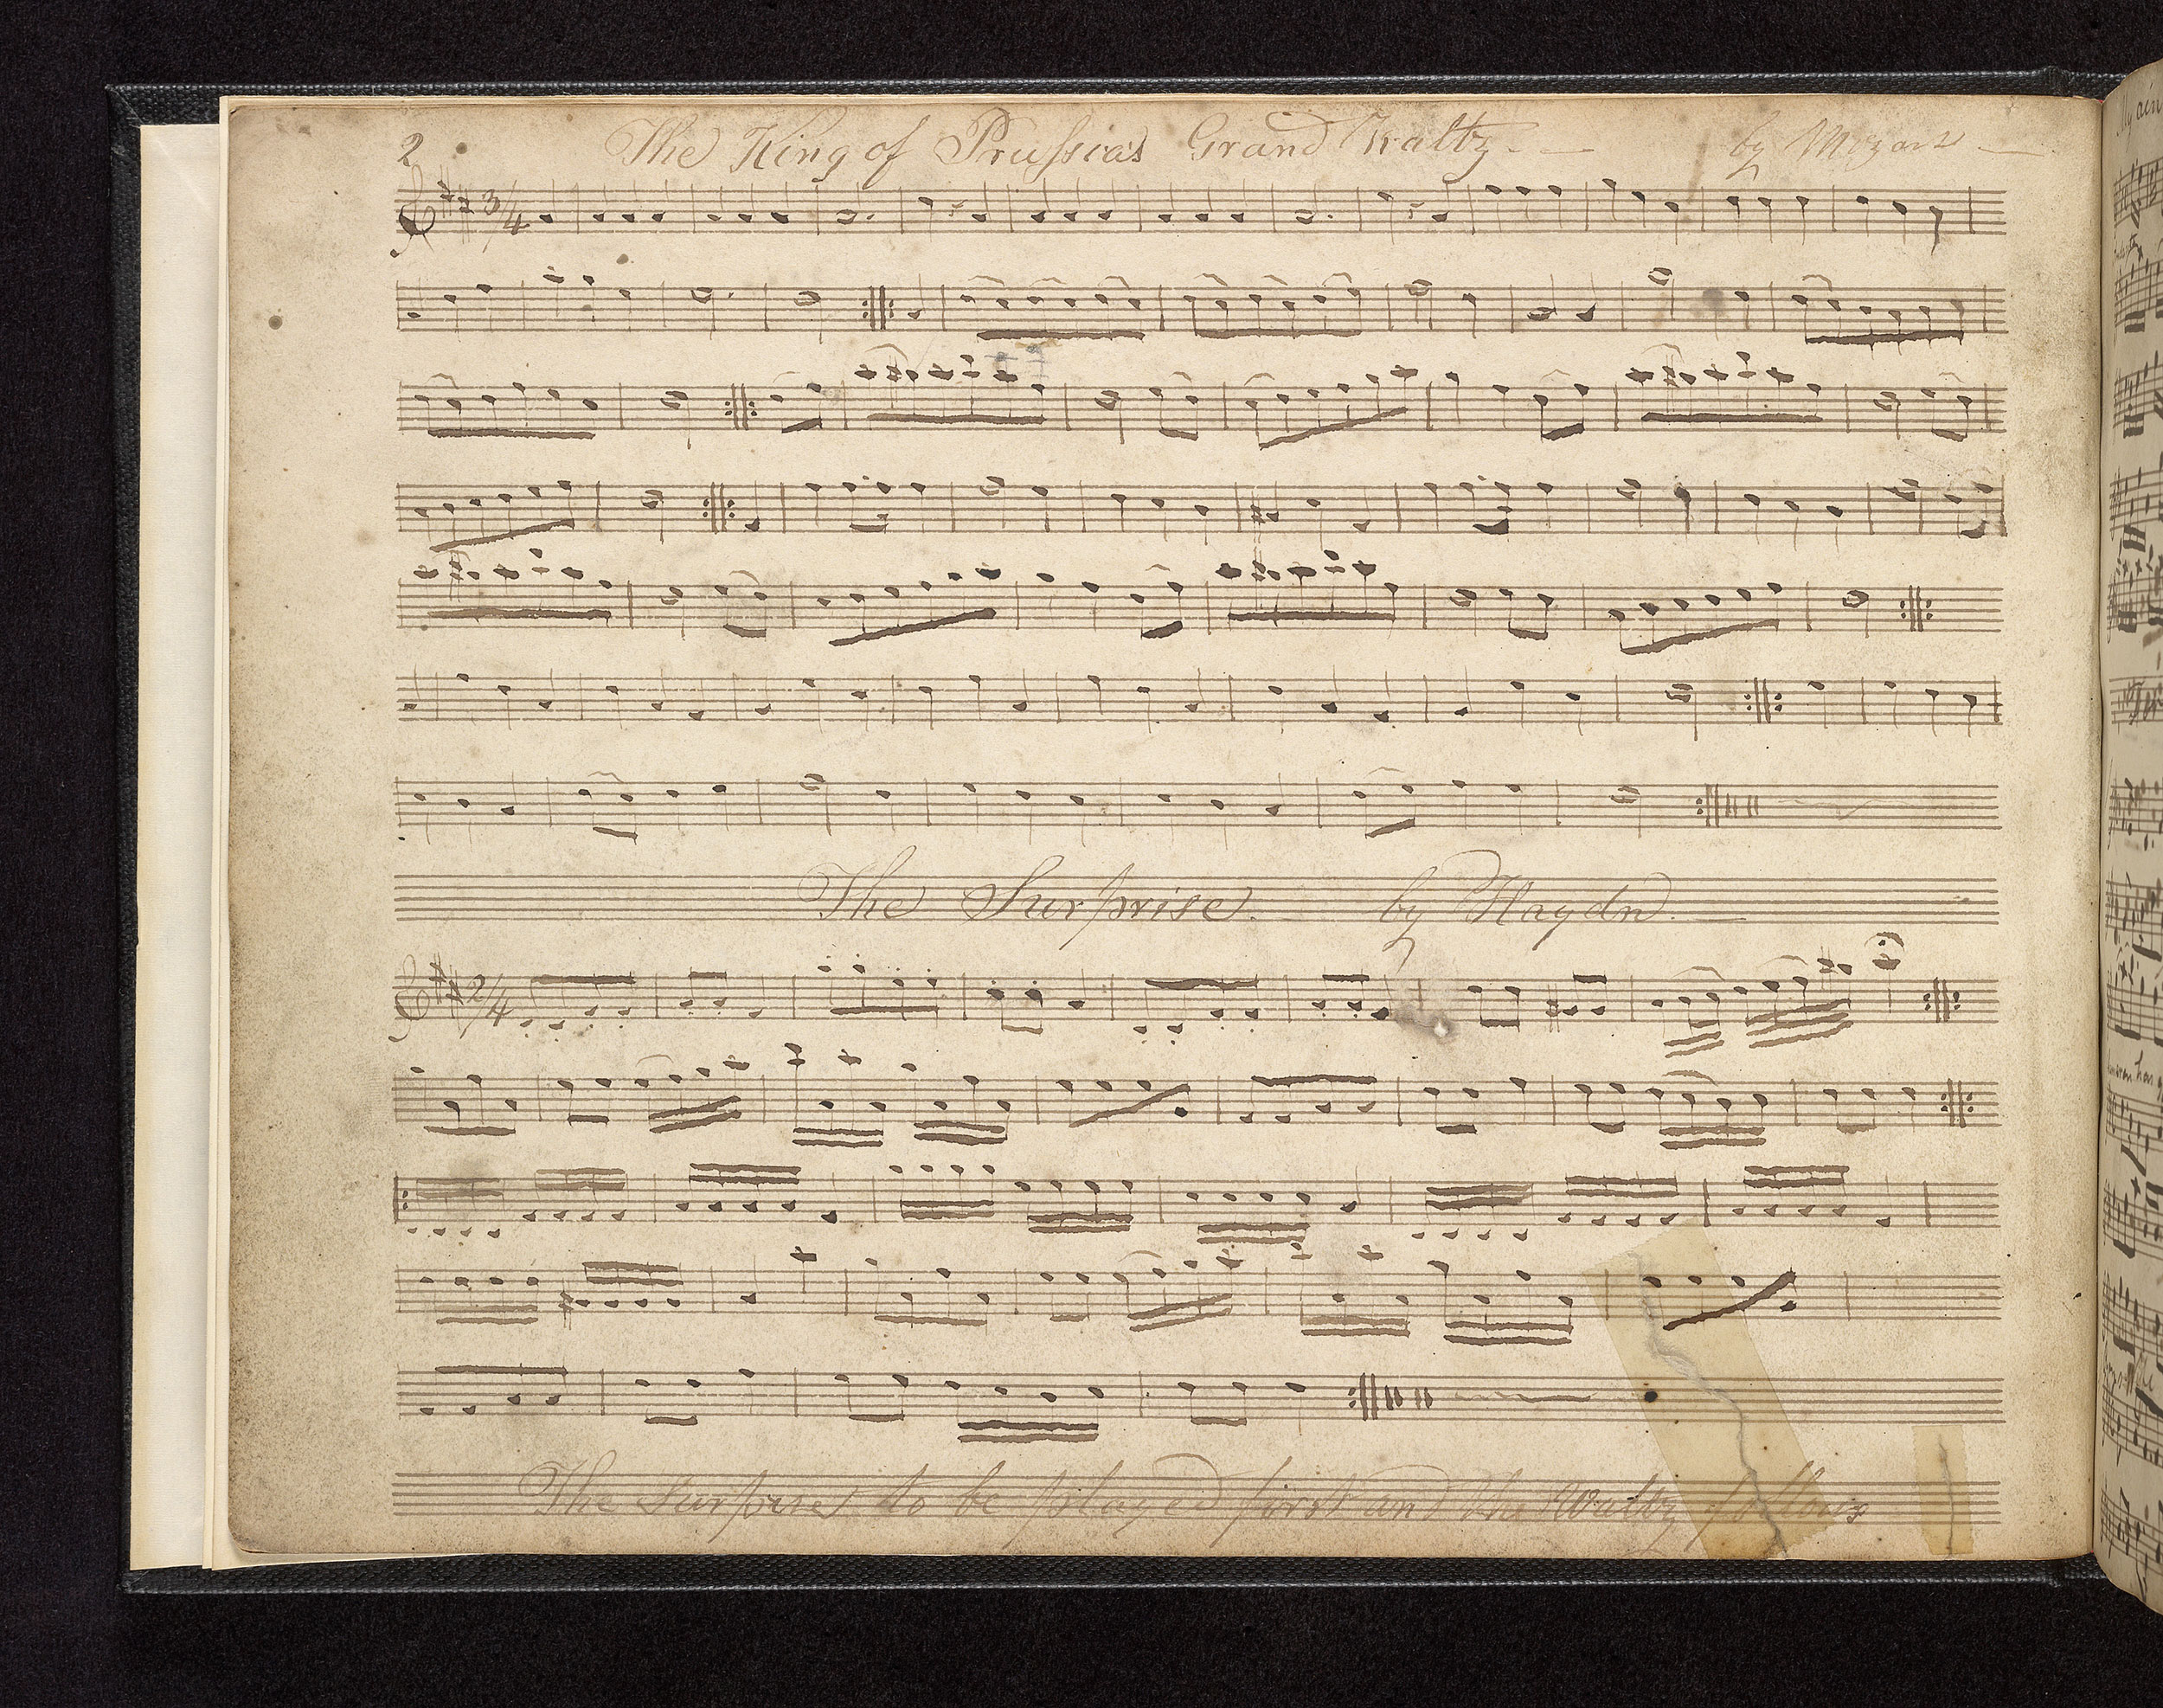 2 The King of Pruſsia's Grand Waltz by Mozart
3/4
The Surprise. by Haydn.
2/4
The Surprise to be played first and the Waltz follows
My ain